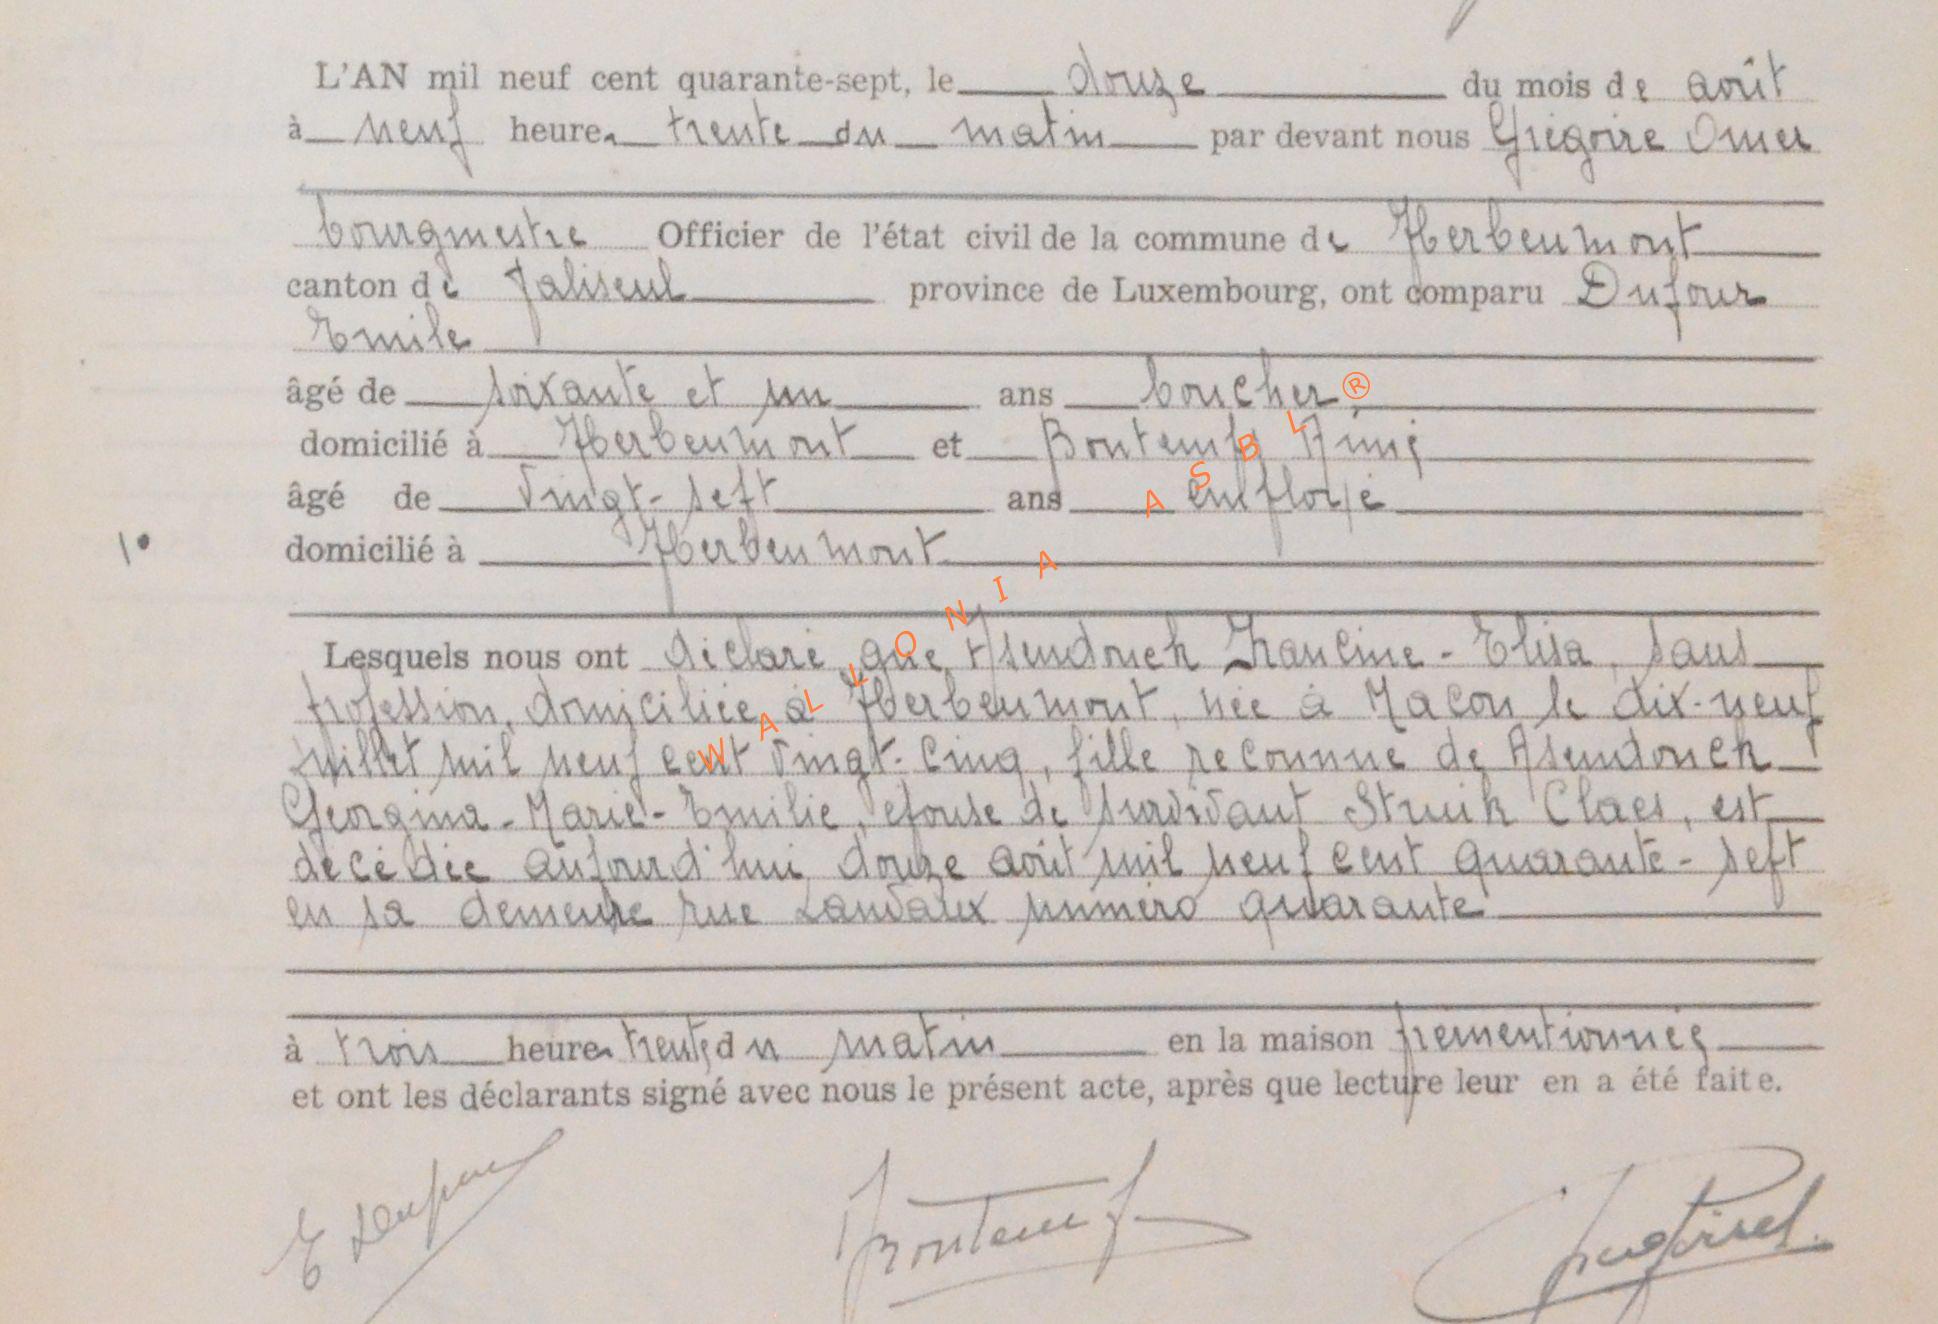 L'AN mil neuf cent quarante-sept, le douze du mois de août
à neuf heures trente du matin par devant nous Grégoire Omer
bourgmestre Officier de l'état civil de la commune de Herbeumont
canton de Paliseul province de Luxembourg, ont comparu Dufour
Emile
âgé de soixante et un ans boucher,
domicilié à Herbeumont et Bontemps Aimé
âgé de vingt-sept ans employé
1° domicilié à Herbeumont
Lesquels nous ont déclaré que Asendonck Francine-Elisa, sans
profession, domiciliée à Herbeumont, née à Macon le dix-neuf
juillet mil neuf cent vingt-cinq, fille reconnue de Asendonck
Georgina-Marie-Emilie, épouse de survivant Struik Claes, est
décédée aujourd'hui douze août mil neuf cent quarante-sept
en sa demeure rue Lauvaux numéro quarante
à trois heures trente du matin en la maison prémentionnée
et ont les déclarants signé avec nous le présent acte, après que lecture leur en a été faite.
E Dufour Bontemps
WALLONIA ASBL ®